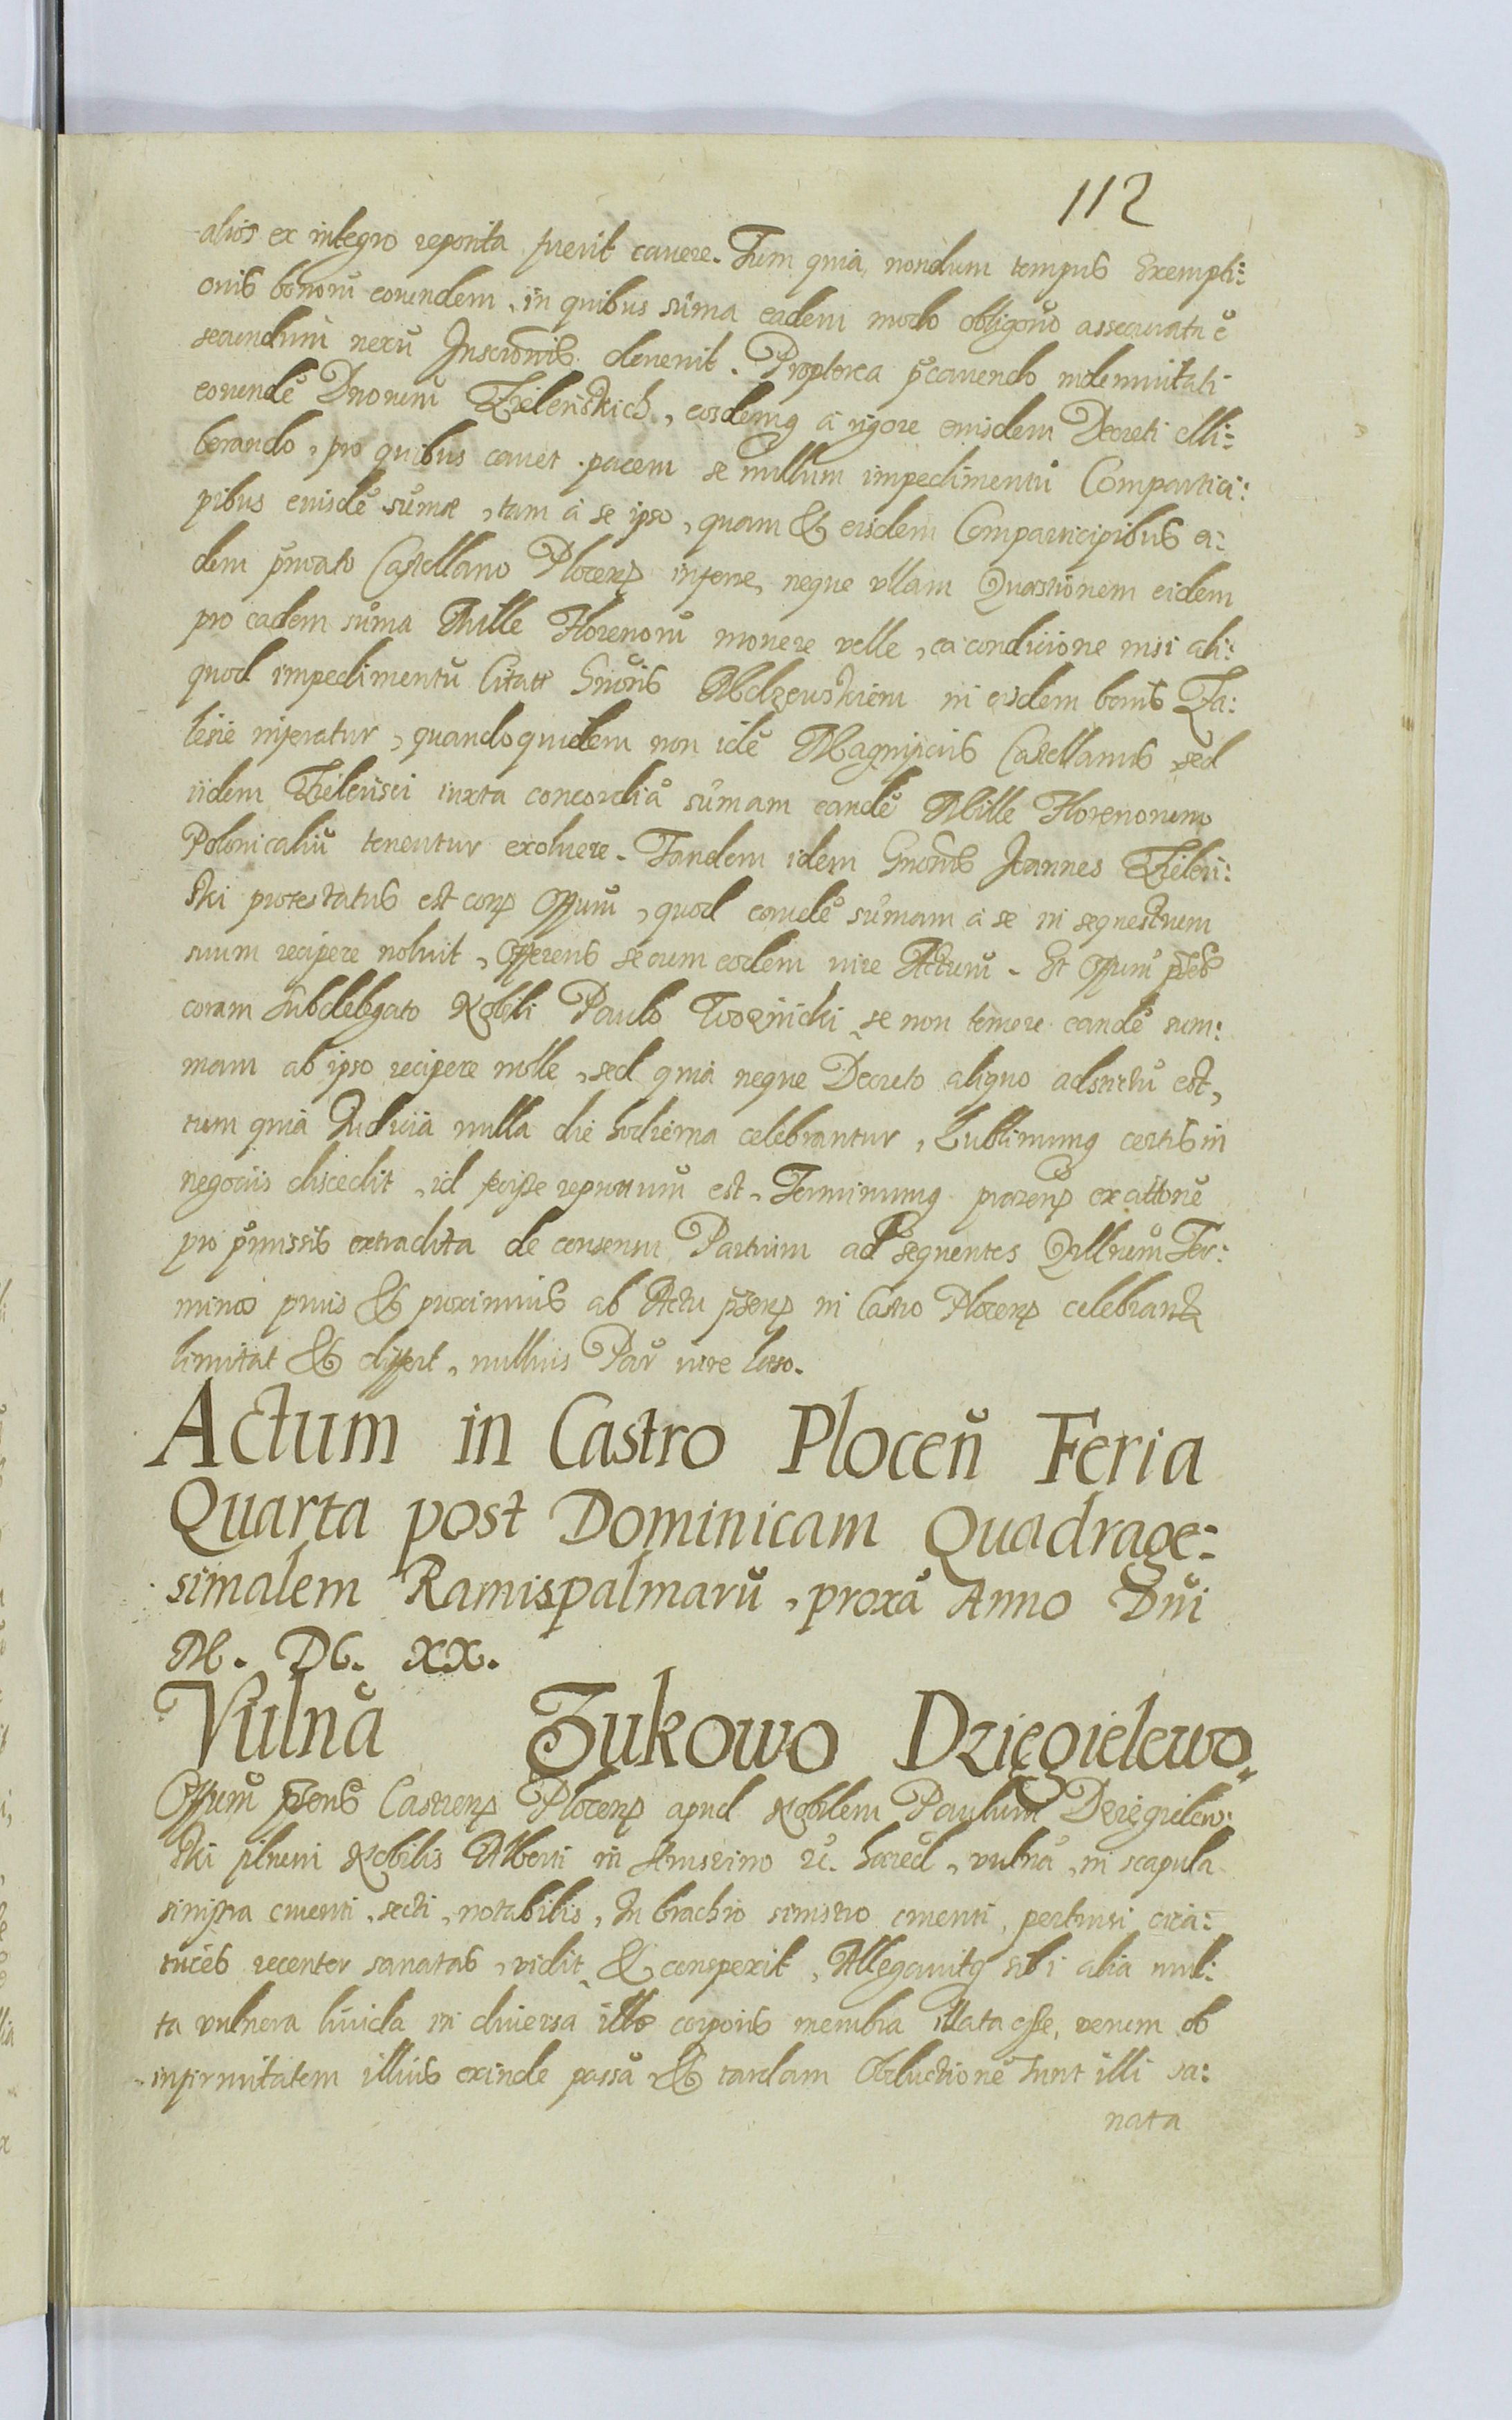 112
alios ex integro reposita fuerit cauere. Tum quia, nondum tempus Exempti:
onis bonorũ eorundem, in quibus sũma eadem modo obligorio assecurata ẽ
secundum nexũ Inscrõnis deuenit. Propterea p̃cauendo indemnitati
eorundẽ Dnorum Zielenskich, eosdemq̃ a rigore eiusdem Decreti elli:
berando, pro quibus cauet pacem se nullum impedimentũ Compartici:
pibus eiusdẽ sũmæ, tam a se ipso, quam & eisdem Comparticipibus ei:
dem priuato Castellano Plocen̄ inferre, neque vllam Quæstionem eidem
pro eadem sũma Mille Florenorũ mouere velle, ea condicione nisi ali:
quod impedimentũ Citatt Gnõsis Mdzewskiem in eisdem bonis Za:
lesie inferatur, quandoquidem non idẽ Magnificus Castellanus sed
iidem Zielensci iuxta concordiã sũmam eandẽ Mille Florenorum
Polonicaliũ tenentur exoluere. Tandem idem Gnosus Joannes Zielen:
ski protestatus est corã Offium, quod eandẽ sũmam a se in sequestrum
suum recipere noluit, Offerens se cum eodem iure Acturũ. Et Offium p̃ns
coram subdelegato Nobili Paulo Woznicki se non temere eandẽ sum:
mam ab ipso recipere nolle, sed quia neque Decreto aliquo adstrictũ est,
tum quia Judicia nulla die hodierna celebrantur, Lublinumq̃ certis in
negociis discedit, id fecisse repertum est. Terminumq̃ præsen̄ ex attone
pro p̃missis extradita de consensu Partium ad sequentes Qrllrum Ter:
minos primis & proximius ab Actu p̃sen̄ in Castro Plocen̄ celebrand
limitat & differt, nullius Par iure læso.
Actum in Castro Plocen̄ Feria
Quarta post Dominicam Quadrage:
simalem Ramispalmarũ, proxã Anno Dni
M. DC. XX.
Vulnã Zukowo Dzięgielewo.
Offium p̃sens Castren̄ Plocen̄ apud Nobilem Paulum Dzięgielew:
ski filium Nobilis Alberti in hæred, vulnã, in scapula
sinistra cruenti, secti, notabilis, In brachio sinistro cruenti, pertusi cica:
trices recenter sanatas, vidit & conspexit, Allegauitq̃ sibi alia mul:
ta vulnera liuida in diuersa illo corporis membra illata esse, verum ob
infirmitatem illius exinde passã & tardam Obductionẽ sunt illi sa:
nata